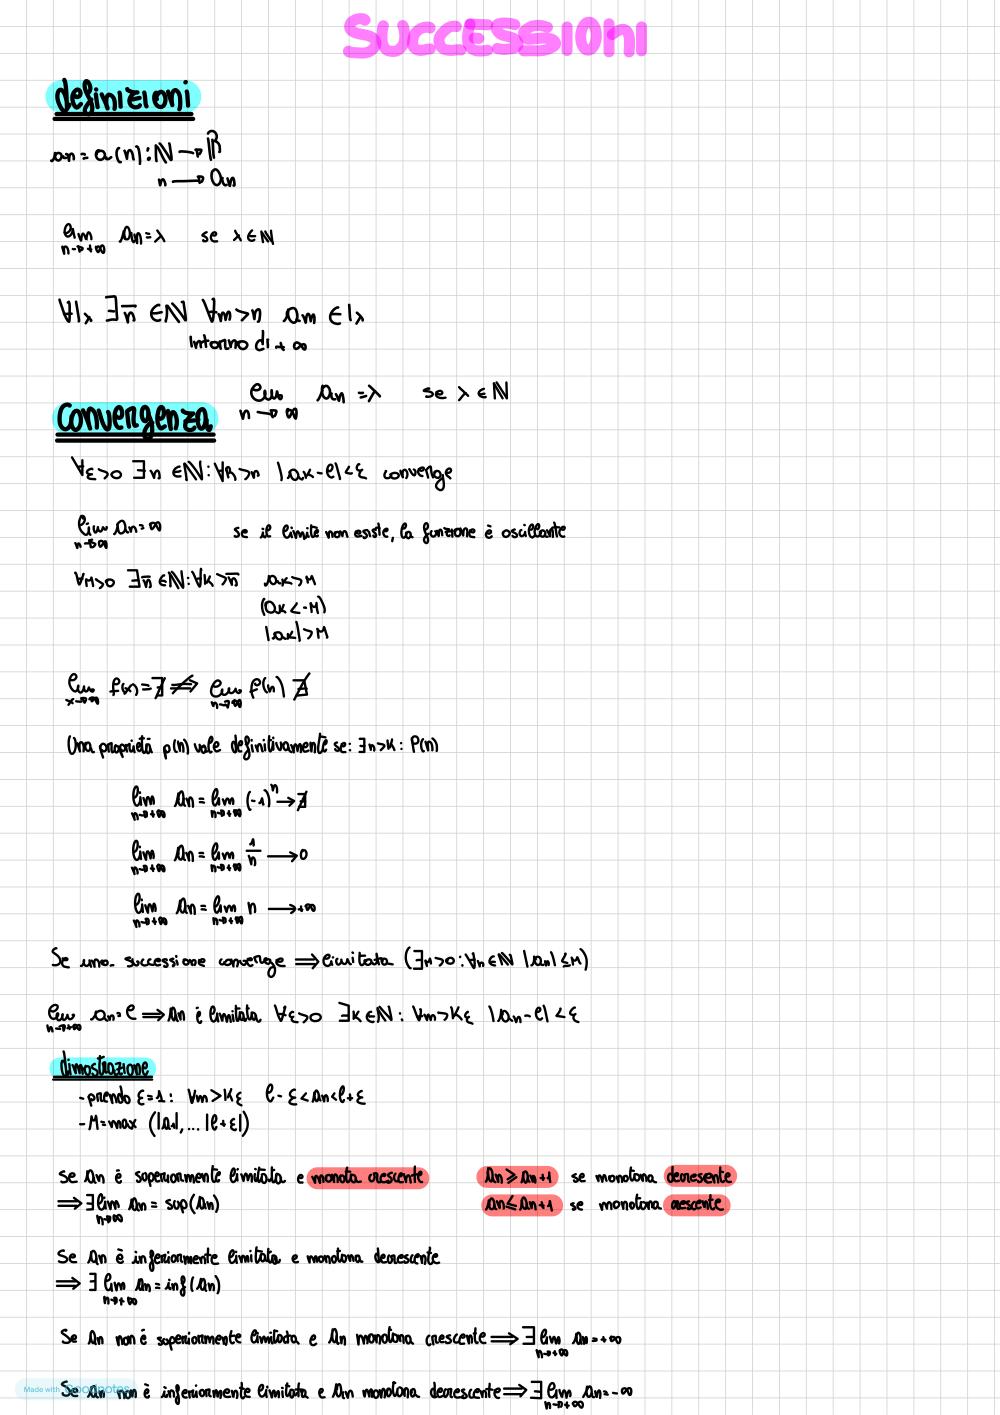 SUCCESSIONI
definizioni
an = a(n): ℕ → ℝ
n → an
lim an = λ se λ ∈ ℕ
n→+∞
∀Iλ ∃n̅ ∈ ℕ ∀m>n am ∈ Iλ
Intorno di +∞
lim an = λ se λ ∈ ℕ
n→∞
Convergenza
∀ε>0 ∃n ∈ ℕ: ∀k>n |ak-l|<ε converge
lim an = ∞ se il limite non esiste, la funzione è oscillante
n→∞
∀M>0 ∃n̅ ∈ ℕ: ∀k>n̅ ak>M
(ak<-M)
|ak|>M
lim f(x) = ∄ ⇏ lim f(n) ∄
x→∞ n→∞
Una proprietà p(n) vale definitivamente se: ∃n>k: P(n)
lim an = lim (-1)ⁿ → ∄
n→+∞ n→+∞
lim an = lim 1/n → 0
n→+∞ n→+∞
lim an = lim n → +∞
n→+∞ n→+∞
Se una successione converge ⇒ limitata (∃M>0: ∀n∈ℕ |an| ≤ M)
lim an = l ⇒ an è limitata ∀ε>0 ∃k∈ℕ: ∀m>kε |an-l|<ε
n→+∞
dimostrazione
- prendo ε=1: ∀m>kε l-ε<an<l+ε
- M=max (|a1|,... |l+ε|)
se an è superiormente limitata e monota crescente an ≥ an+1 se monotona decresente
⇒ ∃ lim an = sup(an) an ≤ an+1 se monotona crescente
n→∞
Se an è inferiormente limitata e monotona decrescente
⇒ ∃ lim an = inf(an)
n→+∞
Se an non è superiormente limitata e an monotona crescente ⇒ ∃ lim an = +∞
n→+∞
Se an non è inferiormente limitata e an monotona decrescente ⇒ ∃ lim an = -∞
n→+∞
Made with Goodnotes